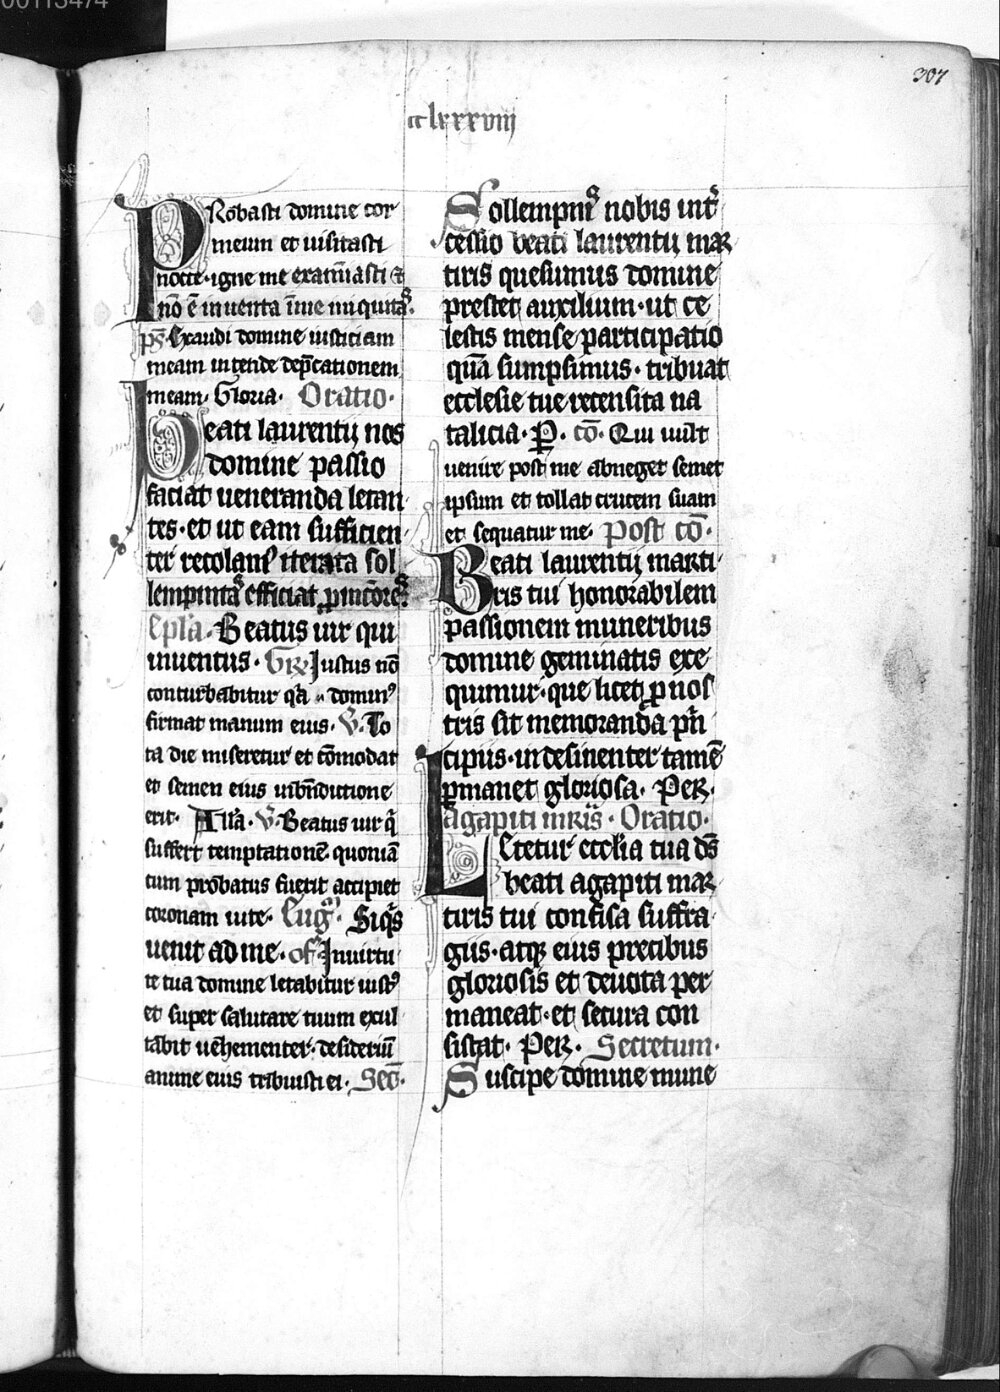 00113474
307
cclxxxviij
PRobasti domine cor
meum et uisitasti
nocte · igne me examīasti ⁊
nō ē inuenta ī me iniquitaˢ.
pˢ. Exaudi domine iusticiam
meam intende dep̄cationem
meam. Gloria. Oratio.
Beati laurentij nos
domine passio
faciat ueneranda letan
tes · et ut eam sufficien
ter recolamꝰ iterata sol
lempnitaˢ efficiat ꝓmciōreˢ.
Epl̄a. Beatus uir qui
inuentus. GR. Iustus nō
conturbabitur q̄a domiꝰ
firmat manum eius. V̄. To
ta die miseretur et cōmodat
et semen eius ī bn̄dictione
erit. All̄a. V̄. Beatus uir q̄
suffert temptationē quoniā
cum probatus fuerit accipiet
coronam uite. Eug̃. Siq̄s
uenit ad me. of̄. In uirtu
te tua domine letabitur iustꝰ
et super salutare tuum exul
tabit uehementer · desideriū
anime eius tribuisti ei. Sec̄.
Sollempniˢ nobis int̄
cessio beati laurentij mar
tiris quesumus domine
prestet auxilium · ut ce
lestis mense participatio
quā sumpsimus · tribuat
ecclesie tue recensita na
talicia. P. cō. Qui uult
uenire post me abneget semet
ipsum et tollat crucem suam
et sequatur me. Post cō.
Beati laurentij marti
ris tui honorabilem
passionem muneribus
domine geminatis exe
quimur · que licet ꝓ nos
tris sit memoranda p̄n
cipiis · indesinenter tamē
ꝑmanet gloriosa. Per.
Agapiti mr̄is. Oratio.
Letetur eccl̄ia tua dˢ
beati agapiti mar
tiris tui confisa suffra
giis · atqꝫ eius precibus
gloriosis et deuota per
maneat · et secura con
sistat. Per. Secretum.
Suscipe domine mune